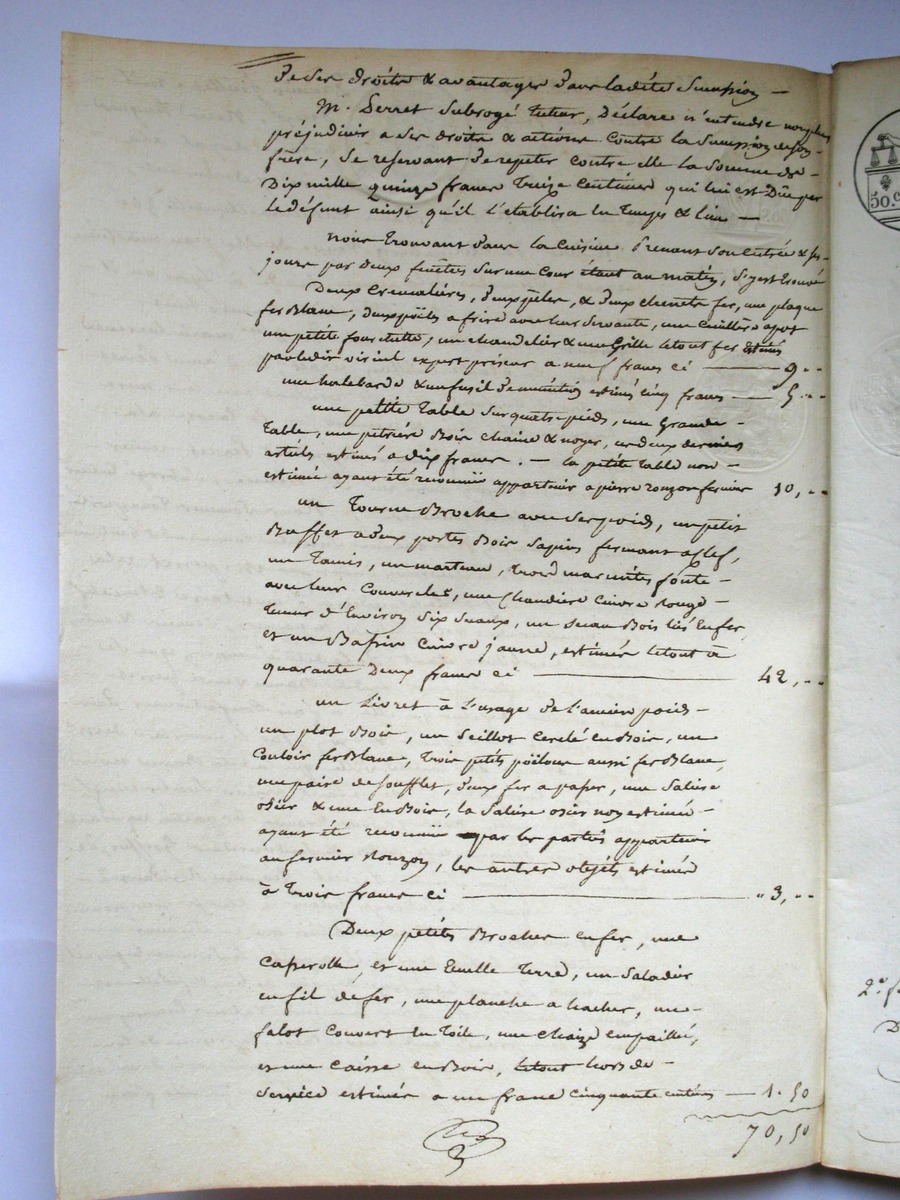 de ses droits & avantages dans ladite succession —
M. Serret subrogé tuteur, Déclare n'entendre non plus
préjudicier a ses droits & actions contre la succession de son
frère, se reservant de repeter contre elle la somme de
Dix mille quinze francs treize centimes qui lui est Düe par
le défunt ainsi qu'il l'etablira en temps & lieu —
nous trouvant dans la cuisine Prenant son entrée & ses
jours par deux fenêtres sur une cour étant au matin, s'y est trouvé
Deux Cremalières, deux pêles, & deux chenets fer, une plaque
fer Blanc, deux poëles a frire avec leur servante, une cuillère a pot
une petite fourchette, un chandelier & une Grille le tout fer estimés
par ledit expert priseur a neuf francs ci — 9 "
une halebarde & un fusil de munition estimés cinq francs — 5 "
une petite table sur quatre pieds, une Grande
table, une pétrière Bois chaine & noyer, ces deux derniers
articles estimés a dix francs. — la petite table non
estimée ayant été reconnüe appartenir a pierre rouzon fermier 10, "
un Tourne Broche avec ses poids, un petit
Buffet a deux portes Bois sapin fermant a clef,
un Tamis, un marteau, trois marmites fonte
avec leur couvercle, une Chaudière Cuivre rouge
tenant d'Environ six seaux, un seau Bois liés En fer,
et un Bassin Cuivre jaune, estimés le tout à
quarante Deux francs ci — 42, "
un Livret à l'usage de l'ancien poids
un plot Bois, un seillot Cerclé en Bois, un
Couloir fer Blanc, trois petits poëlons aussi fer Blanc,
une paire de soufflet, deux fer a passer, une Salière
osier & une En Bois, la Salière osier non estimée
ayant été reconnüe par les parties appartenir
au fermier Rouzon, les autres objets estimés
à trois francs ci — " 3, "
Deux petits Broches en fer, une
Casserolle, et une Ecuelle Terre, un Saladier
en fil de fer, une planche a hacher, un
falot Couvert en Toile, une chaize empaillée,
et une caisse en Bois, le tout hors de
service estimés a un franc cinquante centimes — 1.50
70,50
50 c
2.e
D